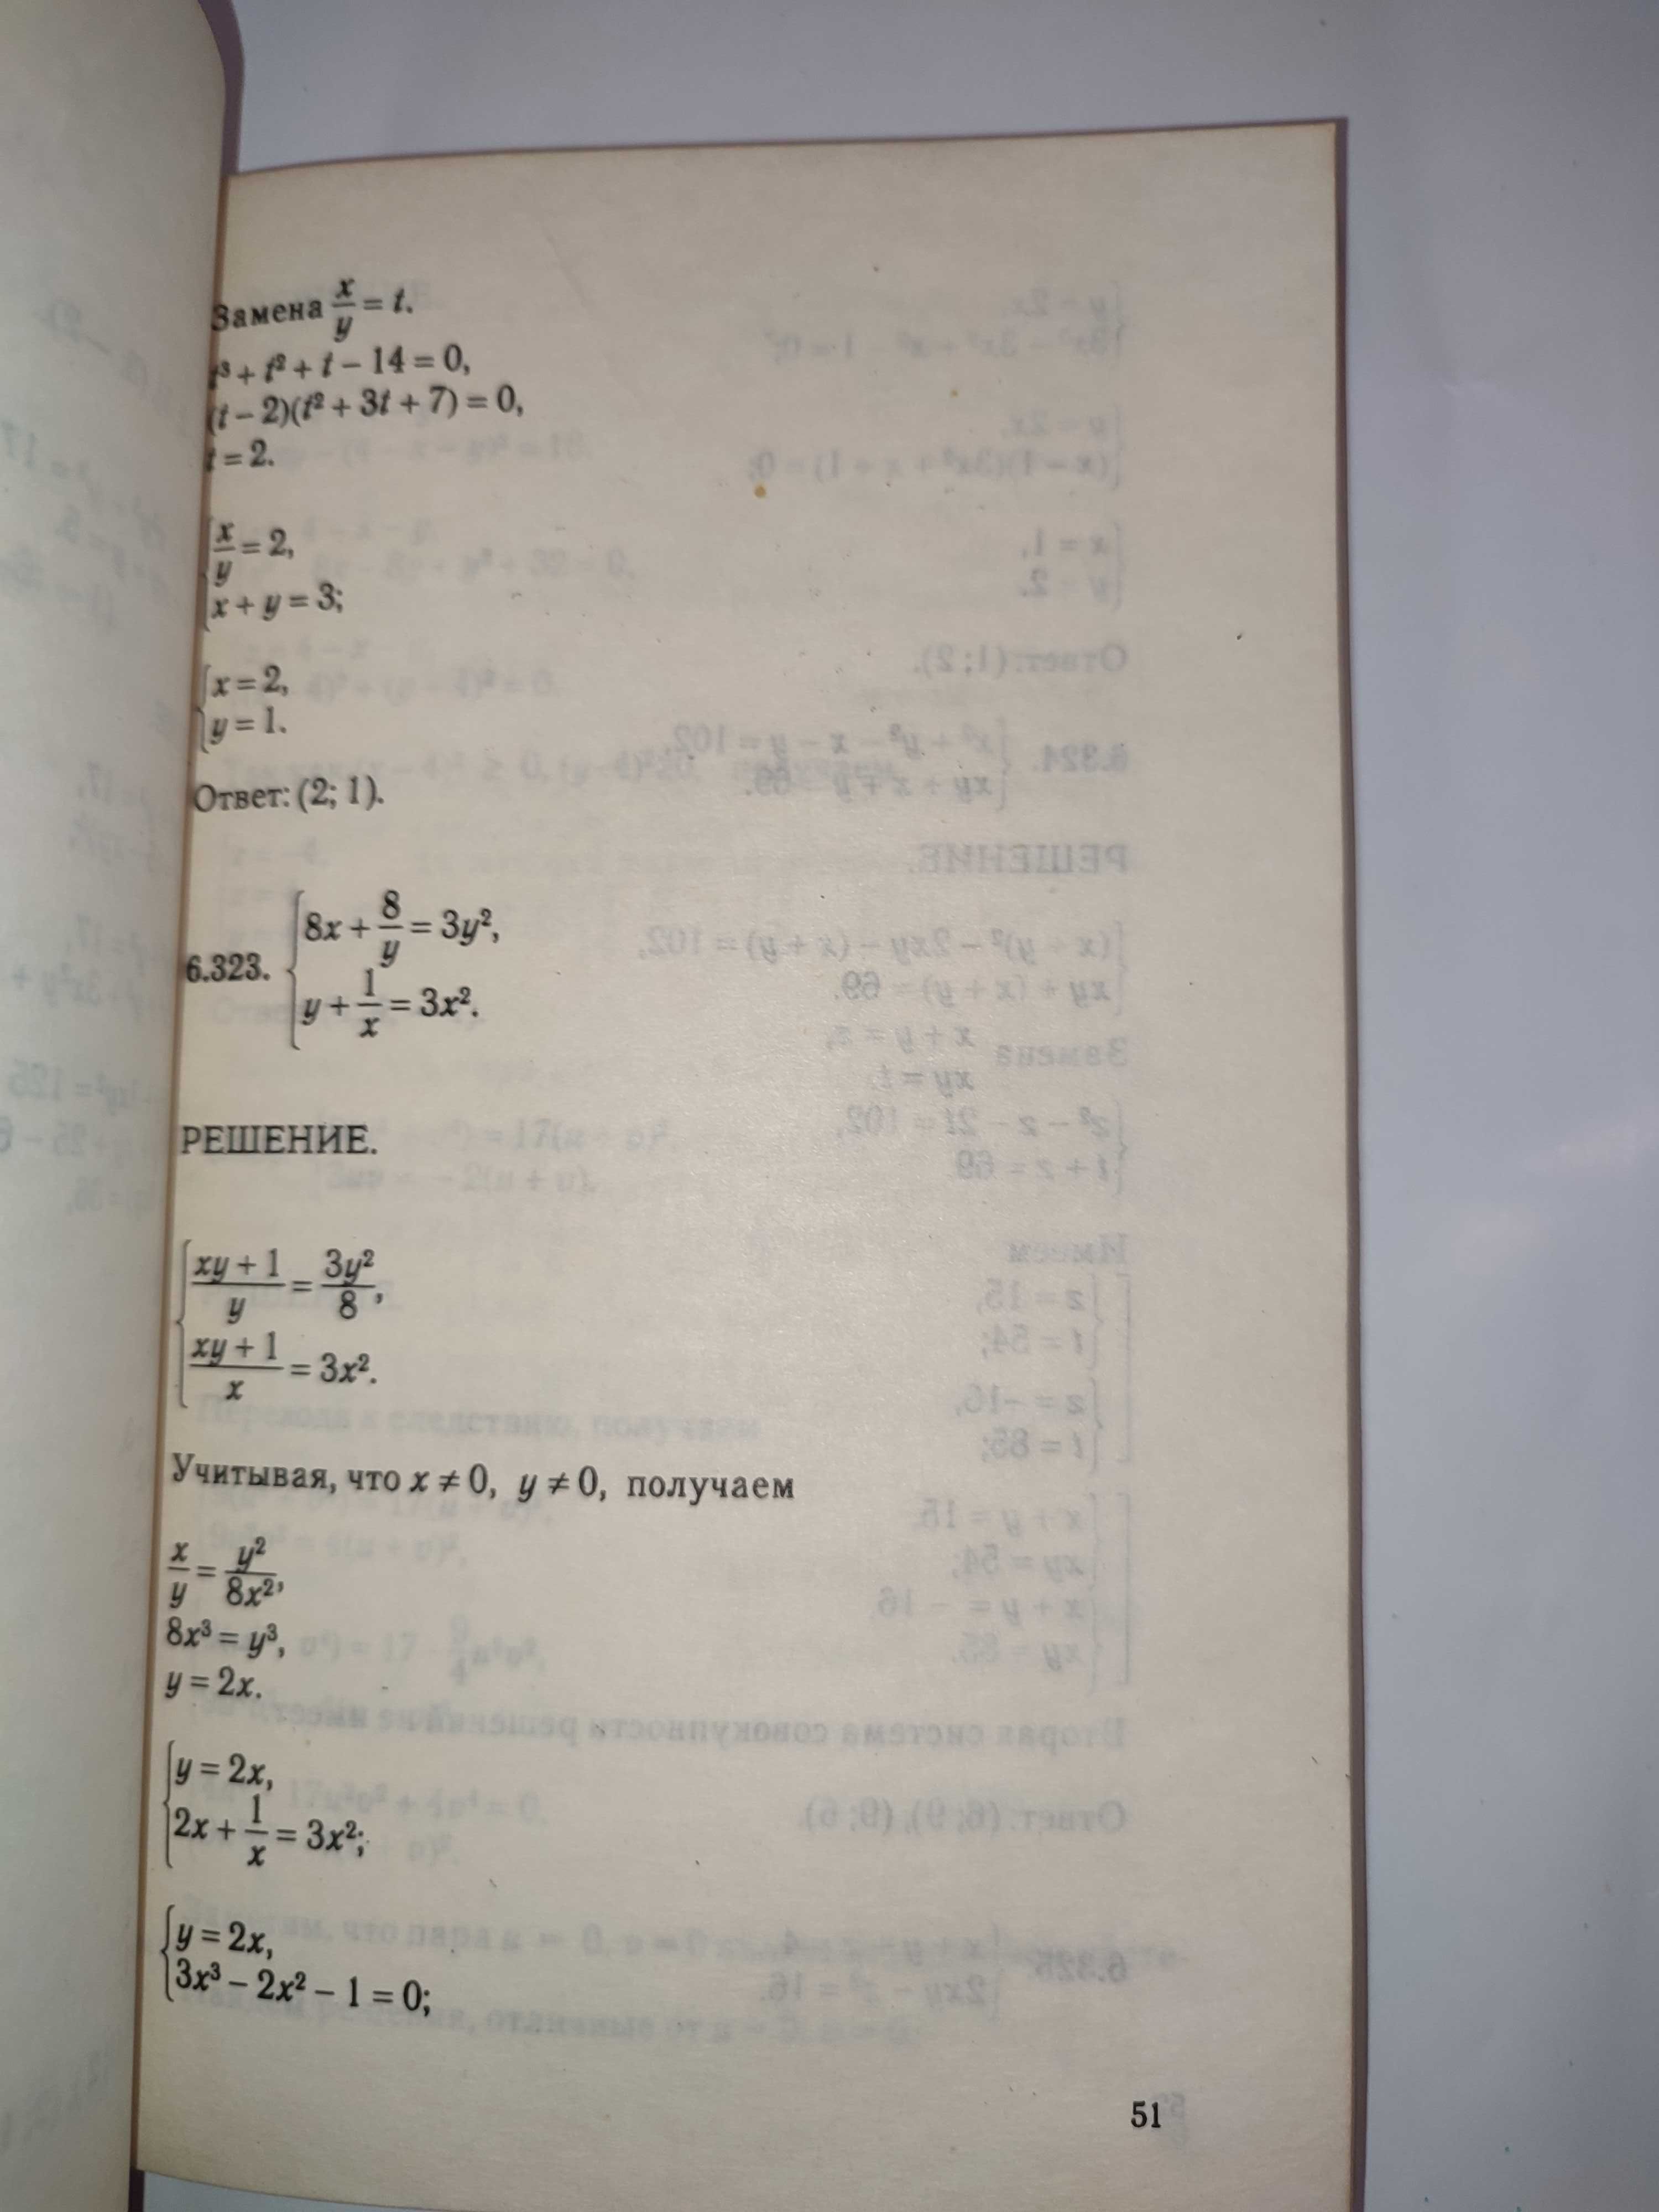 Замена x/y = t.
t³ + t² + t – 14 = 0,
(t – 2)(t² + 3t + 7) = 0,
t = 2.
{ x/y = 2,
x + y = 3;
{ x = 2,
y = 1.
Ответ: (2; 1).
6.323. { 8x + 8/y = 3y²,
y + 1/x = 3x².
РЕШЕНИЕ.
{ (xy + 1)/y = 3y²/8,
(xy + 1)/x = 3x².
Учитывая, что x ≠ 0, y ≠ 0, получаем
x/y = y²/8x²,
8x³ = y³,
y = 2x.
{ y = 2x,
2x + 1/x = 3x²;
{ y = 2x,
3x³ – 2x² – 1 = 0;
51